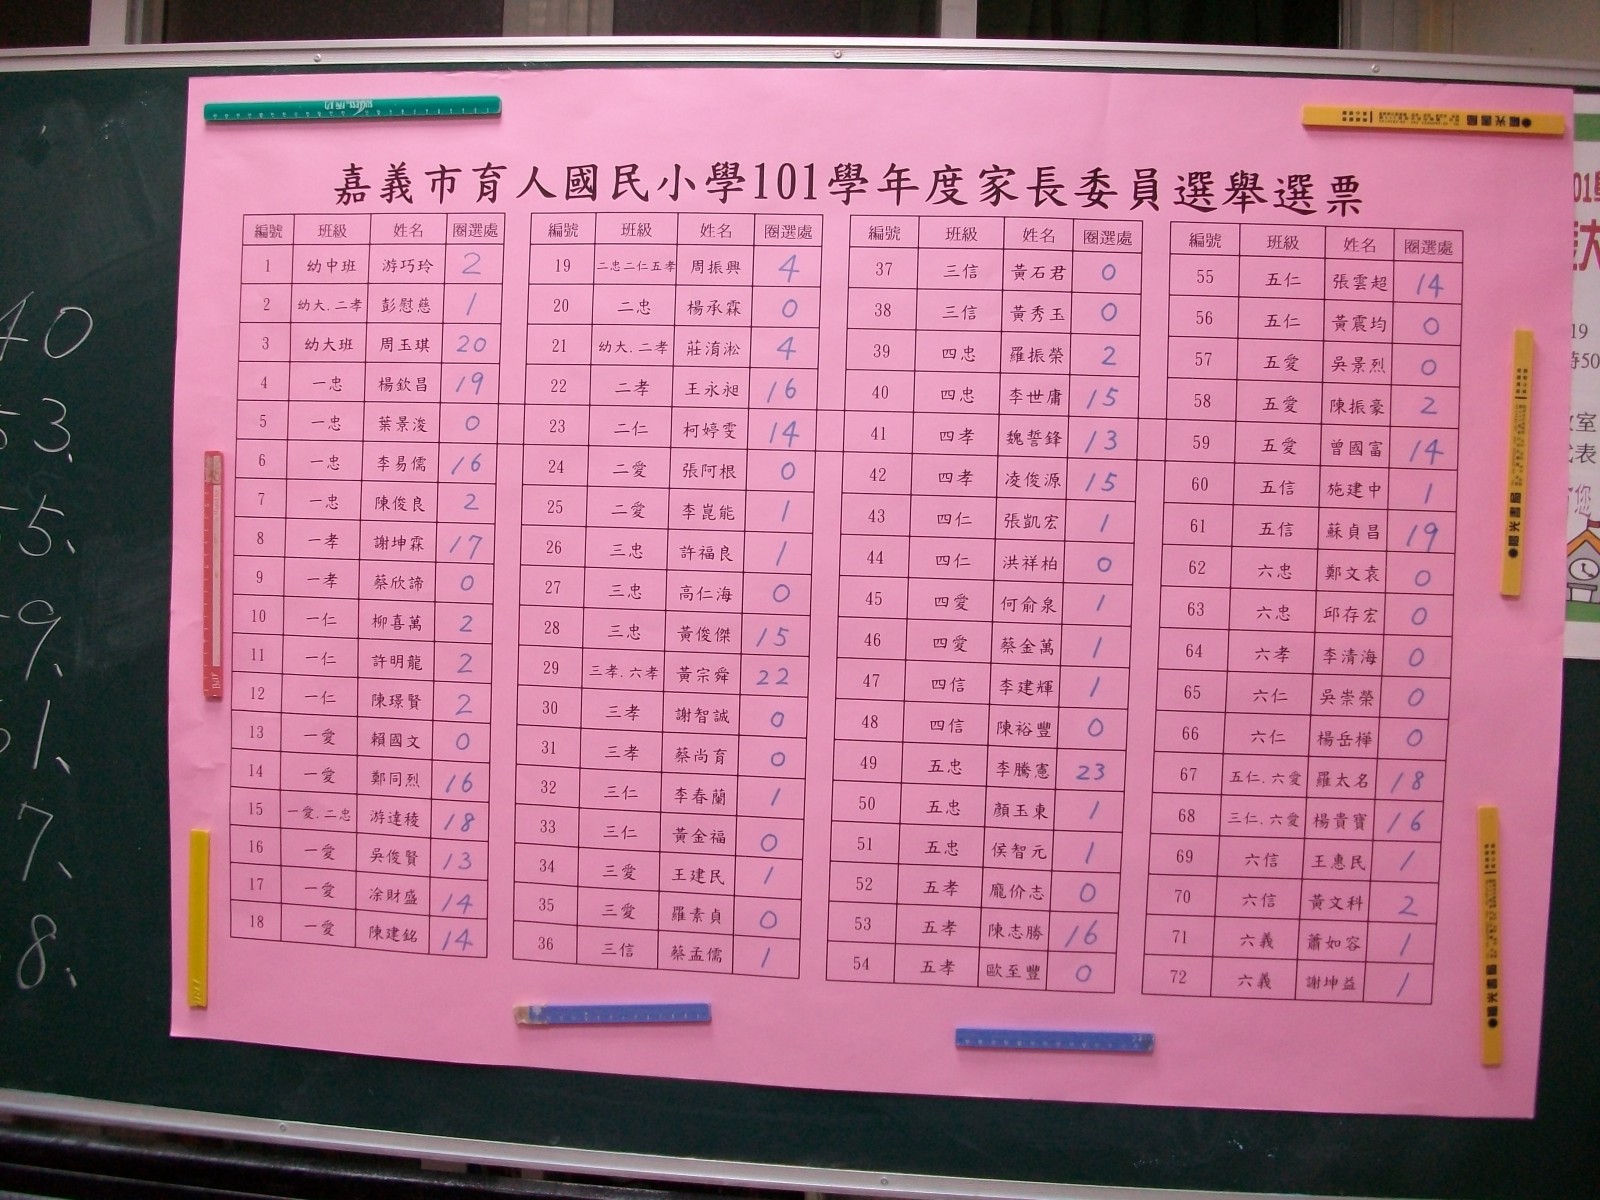 嘉義市育人國民小學101學年度家長委員選舉選票
編號 班級 姓名 圈選處
1 幼中班 游巧玲 2
2 幼大.二孝 彭慰慈 1
3 幼大班 周玉琪 20
4 一忠 楊欽昌 19
5 一忠 葉景浚 0
6 一忠 李易儒 16
7 一忠 陳俊良 2
8 一孝 謝坤霖 17
9 一孝 蔡欣諦 0
10 一仁 柳喜萬 2
11 一仁 許明龍 2
12 一仁 陳璟賢 2
13 一愛 賴國文 0
14 一愛 鄭同烈 16
15 一愛.二忠 游達稜 18
16 一愛 吳俊賢 13
17 一愛 凃財盛 14
18 一愛 陳建銘 14
編號 班級 姓名 圈選處
19 二忠二仁五孝 周振興 4
20 二忠 楊承霖 0
21 幼大.二孝 莊淯淞 4
22 二孝 王永昶 16
23 二仁 柯婷雯 14
24 二愛 張阿根 0
25 二愛 李崑能 1
26 三忠 許福良 1
27 三忠 高仁海 0
28 三忠 黃俊傑 15
29 三孝.六孝 黃宗舜 22
30 三孝 謝智誠 0
31 三孝 蔡尚育 0
32 三仁 李春蘭 1
33 三仁 黃金福 0
34 三愛 王建民 1
35 三愛 羅素貞 0
36 三信 蔡孟儒 1
編號 班級 姓名 圈選處
37 三信 黃石君 0
38 三信 黃秀玉 0
39 四忠 羅振榮 2
40 四忠 李世庸 15
41 四孝 魏誓鋒 13
42 四孝 凌俊源 15
43 四仁 張凱宏 1
44 四仁 洪祥柏 0
45 四愛 何俞泉 1
46 四愛 蔡金萬 1
47 四信 李建輝 1
48 四信 陳裕豐 0
49 五忠 李騰憲 23
50 五忠 顏玉東 1
51 五忠 侯智元 1
52 五孝 龐价志 0
53 五孝 陳志勝 16
54 五孝 歐至豐 0
編號 班級 姓名 圈選處
55 五仁 張雲超 14
56 五仁 黃震均 0
57 五愛 吳景烈 0
58 五愛 陳振豪 2
59 五愛 曾國富 14
60 五信 施建中 1
61 五信 蘇貞昌 19
62 六忠 鄭文袁 0
63 六忠 邱存宏 0
64 六孝 李清海 0
65 六仁 吳崇榮 0
66 六仁 楊岳樺 0
67 五仁.六愛 羅太名 18
68 三仁.六愛 楊貴寶 16
69 六信 王惠民 1
70 六信 黃文科 2
71 六義 蕭如容 1
72 六義 謝坤益 1
40
53、
5、
9、
1、
7、
8、
陽光書局
陽光書局
陽光書局
19
時50
室
代表
您